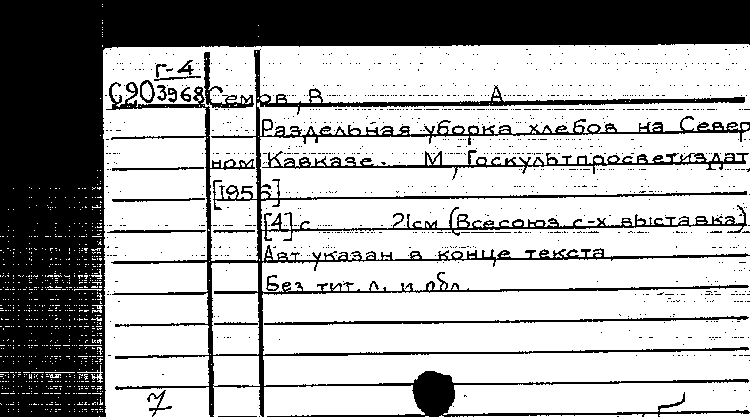 Г-4
С90 3968 Семов, В А
Раздельная уборка хлебов на Север
ном Кавказе. М, Госкультпросветиздат,
[1956]
[4] с 21см (Всесоюз с-х выставка)
Авт указан в конце текста
Без тит. л. и обл.
7